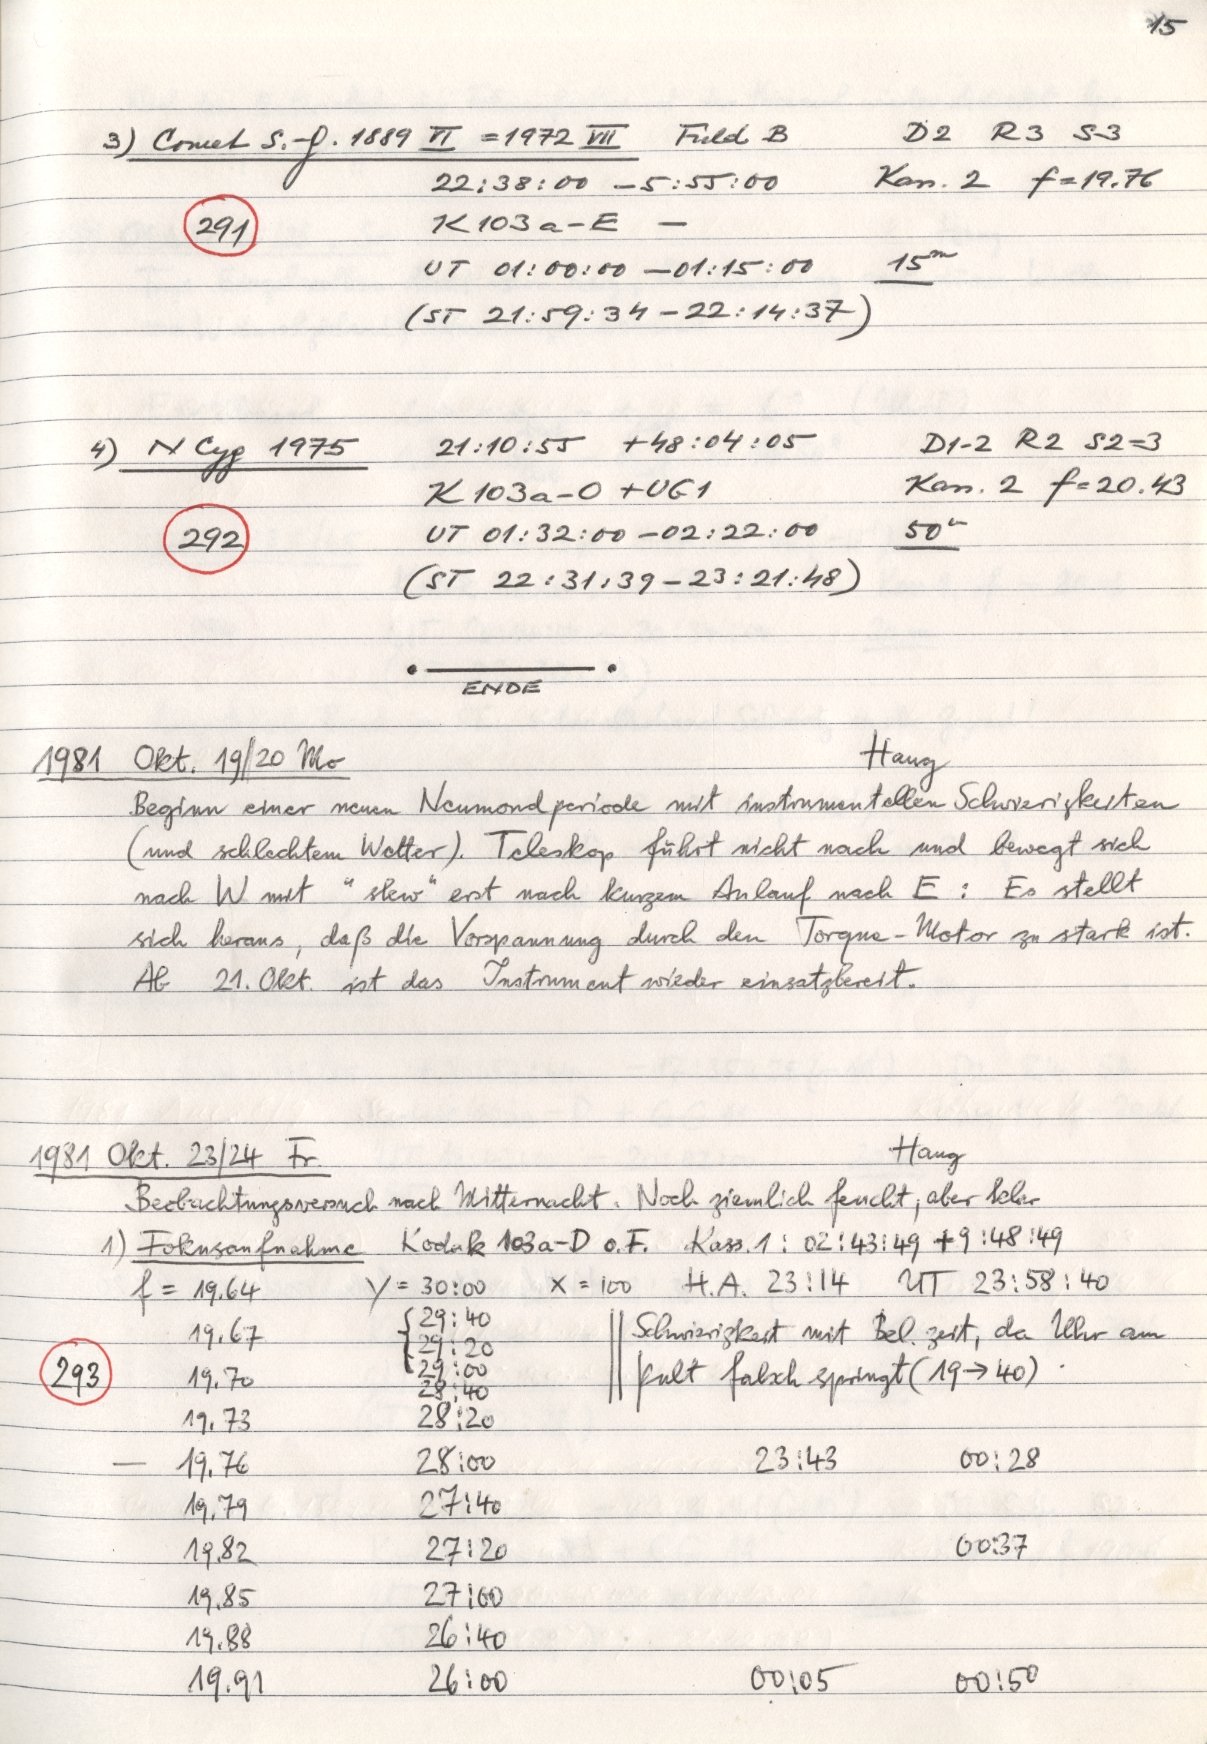 15
3) Comet S.-f. 1889 VI = 1972 VII Field B D2 R3 S3
22:38:00 -5:55:00 Kass. 2 f=19.76
291 K103a-E —
UT 01:00:00 -01:15:00 15m
(ST 21:59:34 - 22:14:37)
4) N Cyg 1975 21:10:55 +48:04:05 D1-2 R2 S2=3
K103a-O +UG1 Kass. 2 f=20.43
292 UT 01:32:00 -02:22:00 50m
(ST 22:31:39 - 23:21:48)
ENDE
1981 Okt. 19/20 Mo Haug
Beginn einer neuen Neumondperiode mit instrumentellen Schwierigkeiten
(und schlechtem Wetter). Teleskop führt nicht nach und bewegt sich
nach W mit "slew" erst nach kurzem Anlauf nach E : Es stellt
sich heraus, daß die Vorspannung durch den Torque-Motor zu stark ist.
Ab 21. Okt. ist das Instrument wieder einsatzbereit.
1981 Okt. 23/24 Fr. Haug
Beobachtungsversuch nach Mitternacht. Noch ziemlich feucht, aber klar
1) Fokusaufnahme Kodak 103a-D o.F. Kass.1: 02:43:49 +9:48:49
f = 19.64 Y = 30:00 X = 100 H.A. 23:14 UT 23:58:40
29:40
19.67 29:20 Schwierigkeit mit Bel. zeit, da Uhr am
29:00
293 19.70 28:40 Pult falsch springt (19→40).
19.73 28:20
— 19.76 28:00 23:43 00:28
19.79 27:40
19.82 27:20 00:37
19.85 27:00
19.88 26:40
19.91 26:00 00:05 00:50